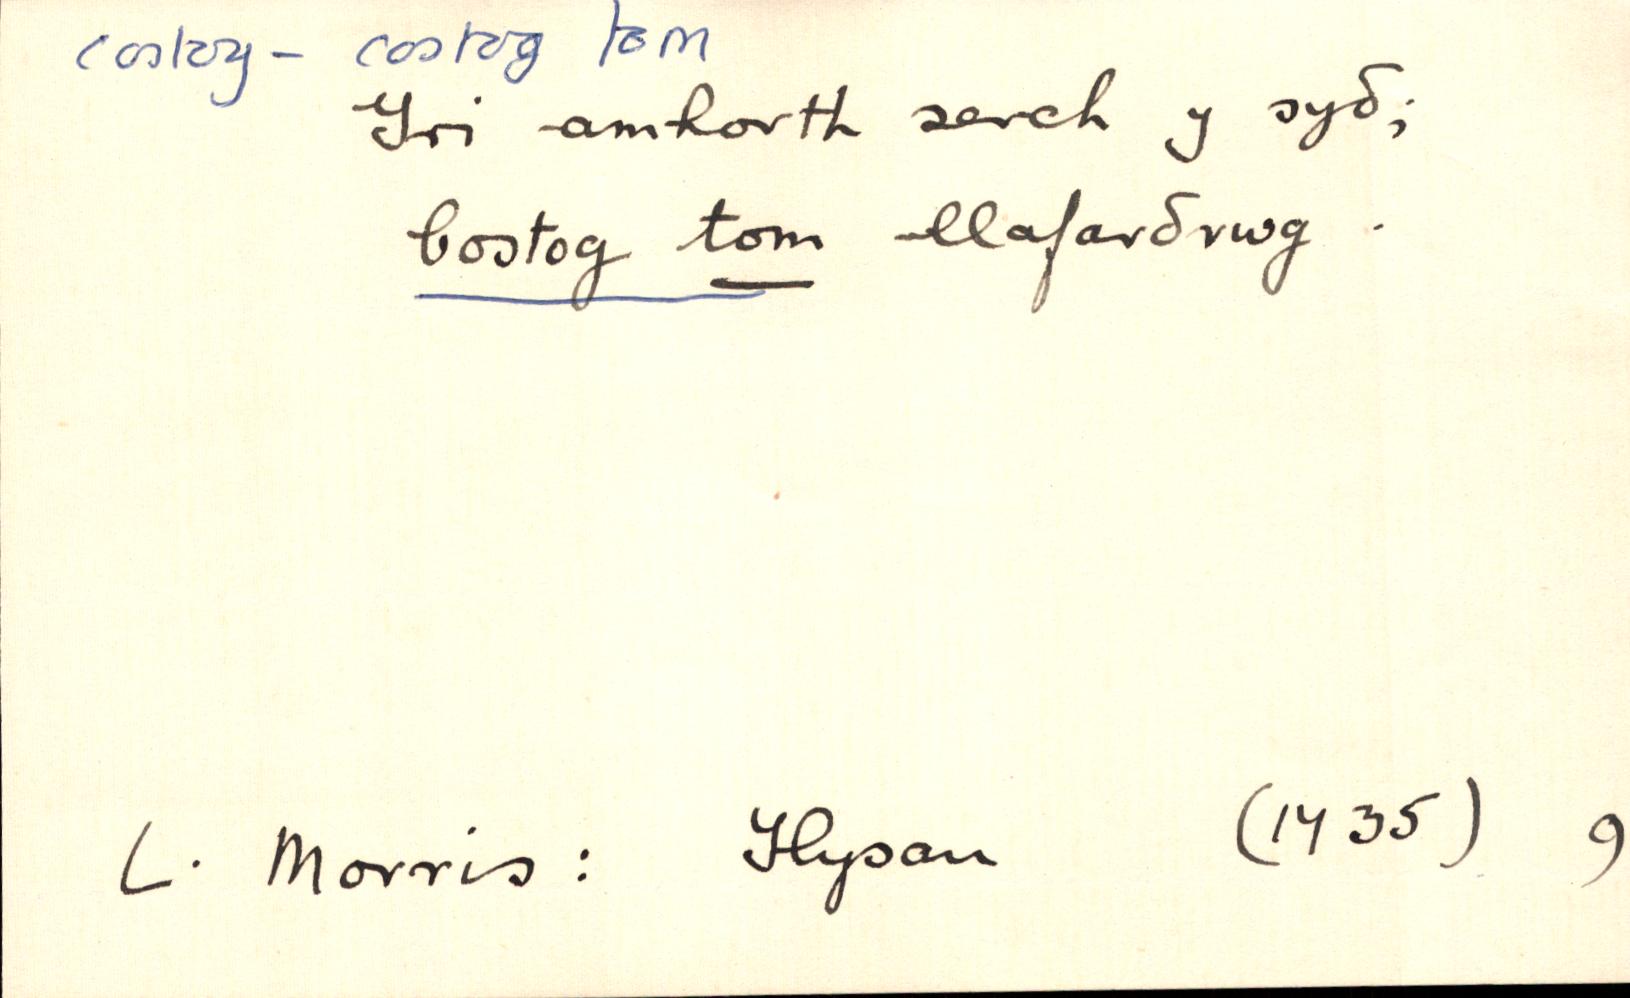 costog – costog tom
Tri amhorth serch y syδ;
Costog tom llafarδrwg.
L. Morris: Tlysau (1735) 9